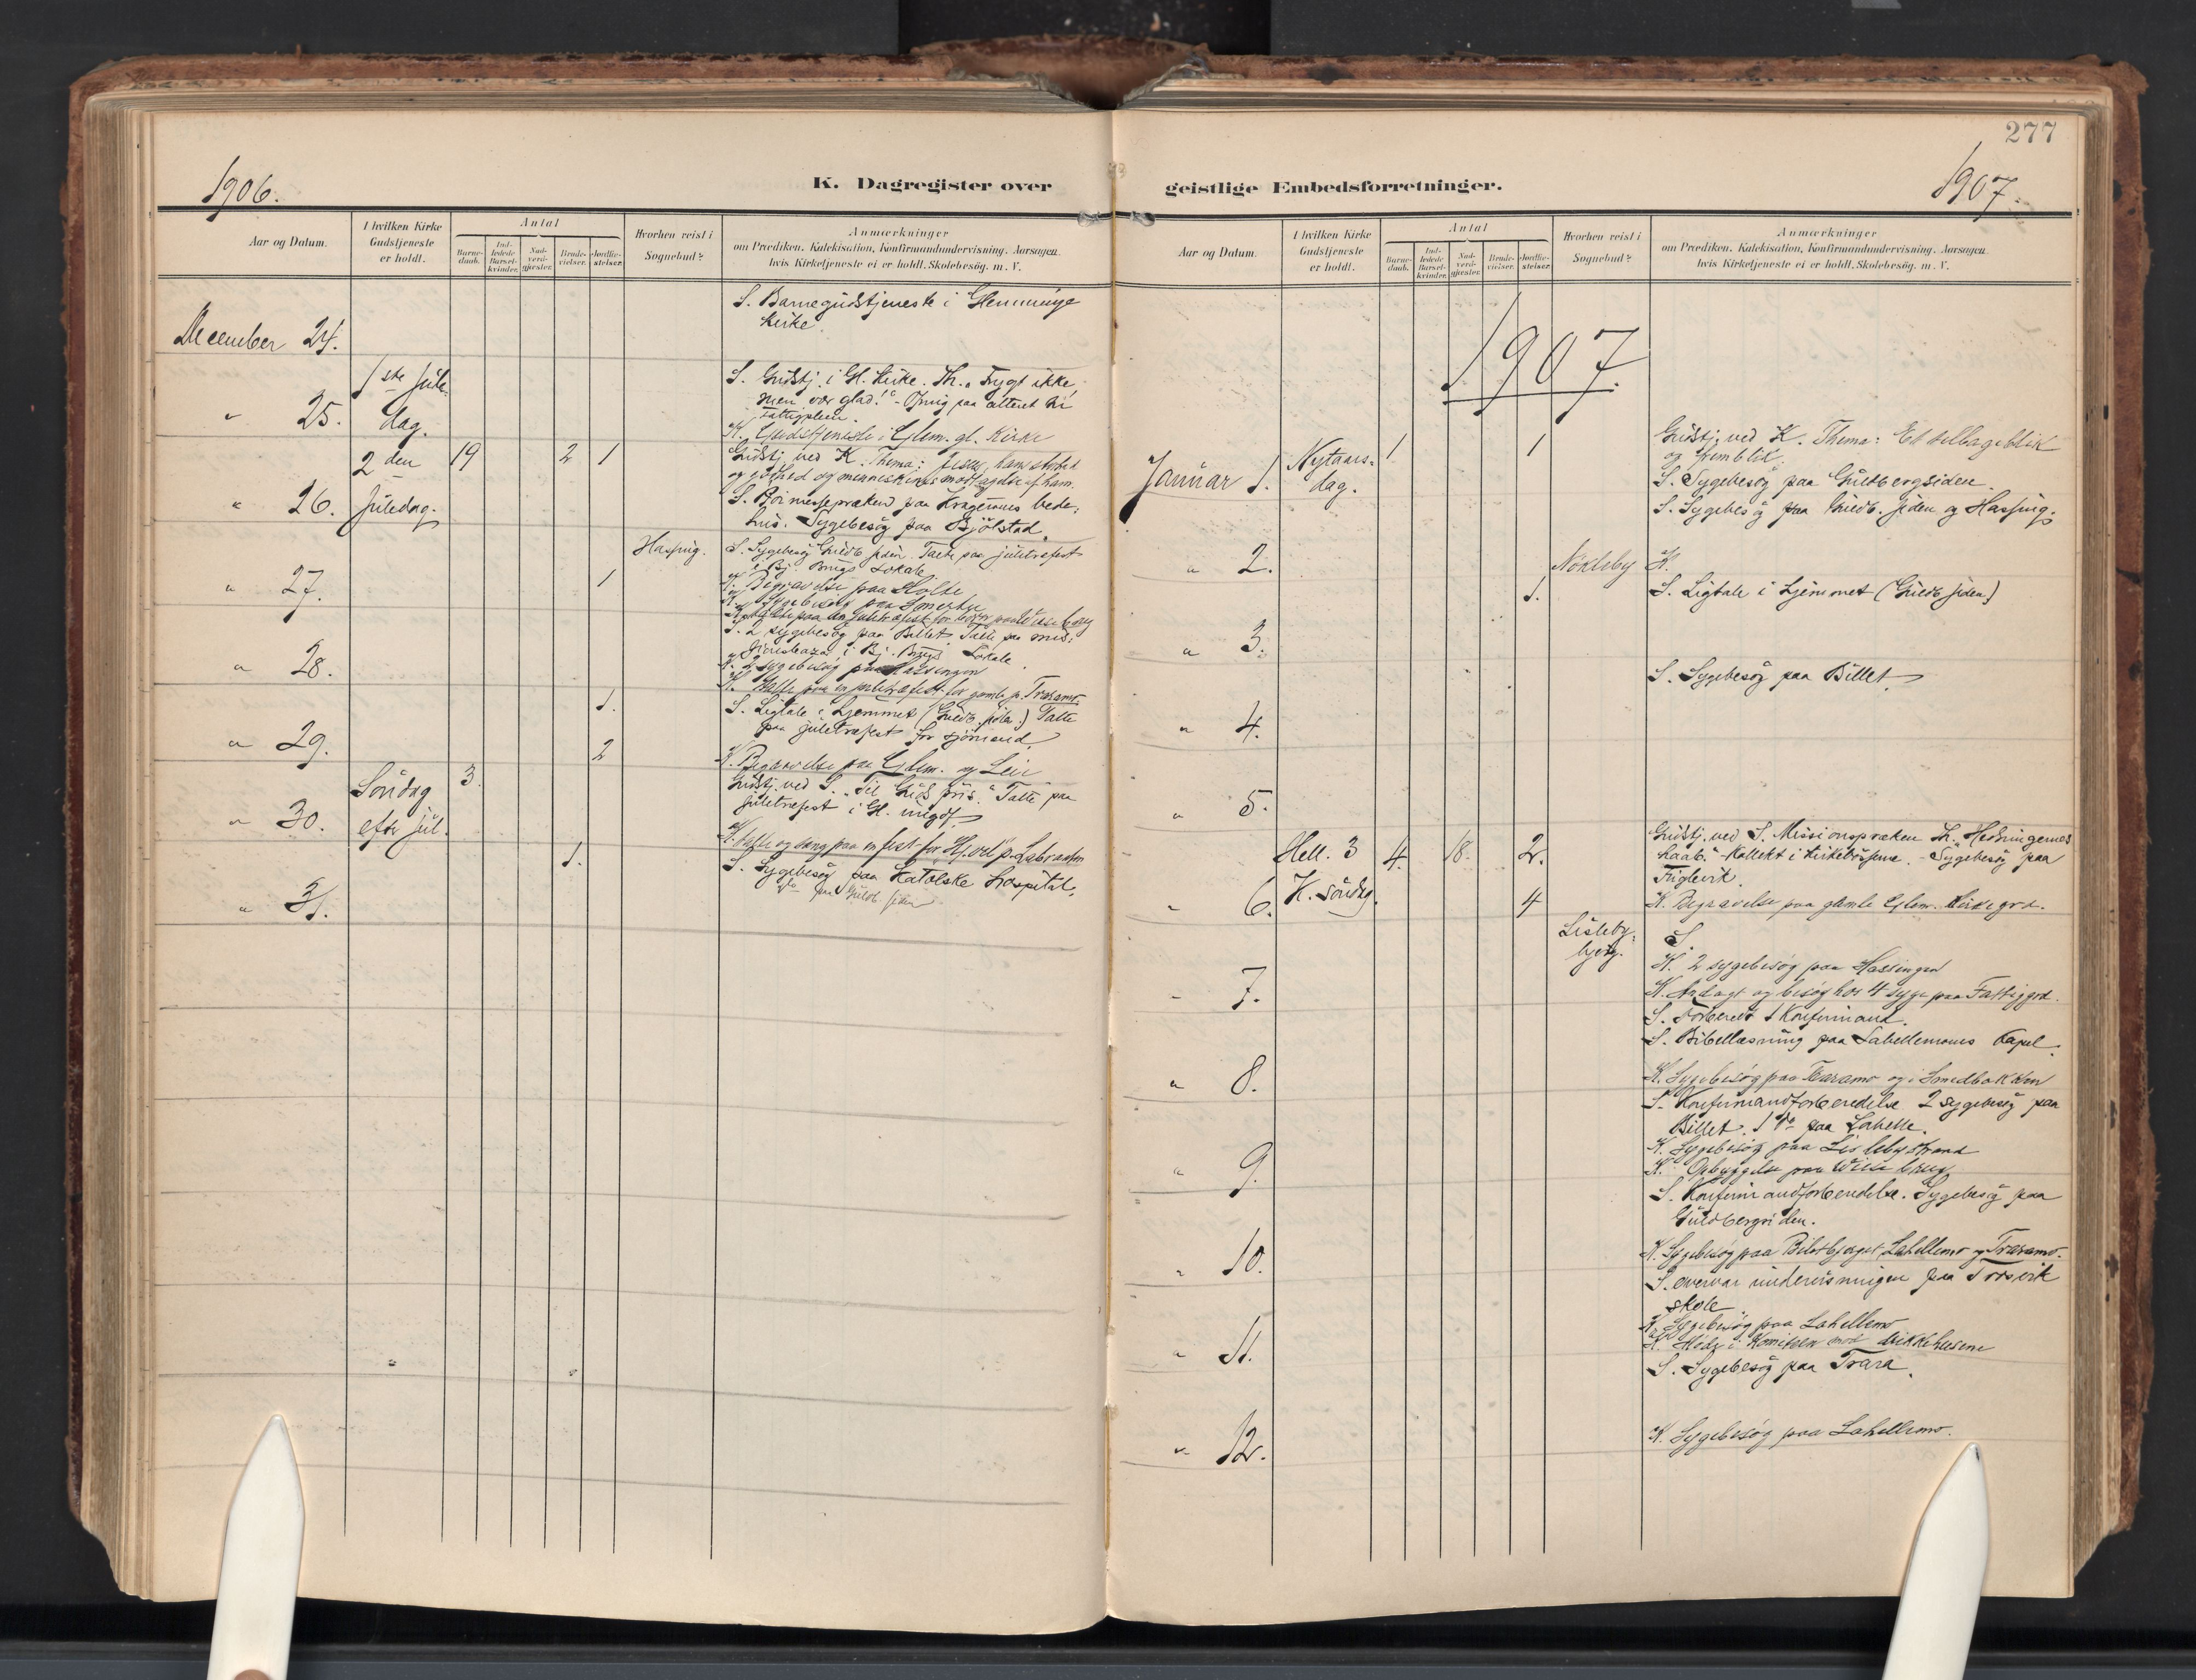 277
1906.
1907.
K. Dagregister over
geistlige Embedsforretninger.
Aar og Datum.
I hvilken Kirke
Gudstjeneste
er holdt.
Antal
Barne-
daab.
Ind-
ledede
Barsel-
kvinder.
Nad-
verd-
gjester.
Brude-
vielser.
Jordfæ-
stelser.
Hvorhen reist i
Sognebud?
Anmærkninger
om Prædiken, Katekisation, Konfirmandundervisning. Aarsagen.
hvis Kirketjeneste ei er holdt. Skolebesøg. m. V.
December 24.
S. Barnegudstjeneste i Glemminge
kirke
" 25.
1ste jule
dag.
S. Gudstj. i Gl. Kirke. Th. „Frygt ikke,
men vær glad!" - Ofring paa alteret til
fattigpleien
K. Gudstjeneste i Glem. gl. Kirke
" 26.
2den
juledag.
19 2 1
Gudstj. ved K. Thema: Jesus, hans storhed
og godhed og menneskenes modtagelse af ham.
S. paa Krageroens bede-
hus. Sygebesøg paa Bjølstad.
" 27.
1
Hassing.
S. Sygebesøg Guldb. siden. Talte paa juletræfest
i Bj. Brugs Lokale
K. Begravelse paa Holte
K. Sygebesøg paa Smertu
" 28.
S. 2 sygebesøg paa Billet. Talte paa
i Bj. Brugs Lokale.
K. 2 sygebesøg paa Hassingen
K. Talte paa en juletræfest for gamle p. Traramo
" 29.
1.
2
S. Ligtale i hjemmet (Guldb. siden) Talte
paa juletræfest for sjømænd.
K. Begravelse paa Glem. og Leie
" 30.
Søndag
efter jul.
3.
Gudstj. ved S. „Til Guds pris." Talte paa
juletræfest i Gl. ungdf.
K. Talte og sang paa en fest for
" 31.
1.
S. Sygebesøg paa Katolske hospital.
do paa Guldb. siden
Aar og Datum.
I hvilken Kirke
Gudstjeneste
er holdt.
Antal
Barne-
daab.
Ind-
ledede
Barsel-
kvinder.
Nad-
verd-
gjester.
Brude-
vielser.
Jordfæ-
stelser.
Hvorhen reist i
Sognebud?
Anmærkninger
om Prædiken. Katekisation, Konfirmandundervisning. Aarsagen.
hvis Kirketjeneste ei er holdt. Skolebesøg. m. V.
1907.
Januar 1.
Nytaars-
dag.
1 1
Gudstj. ved K. Thema: Et tilbageblik
og fremblik.
S. Sygebesøg paa Guldbergsiden.
S. Sygebesøg paa Guldb. siden og Hassing.
" 2.
1.
Nøkleby
K.
S. Ligtale i hjemmet (Guldb siden)
" 3.
S. Sygebesøg paa Billet
" 4.
" 5.
" 6.
Hell. 3
K. søndag.
4. 18. 2.
4
Gudstj. ved S. Missionspræken Th. „Hedningernes
haab." - Kollekt i kirkebøssene. - Sygebesøg paa
Fuglevik.
K. Begravelse paa gamle Glem. kirkegrd.
" 7.
Lisleby-
bjerg.
S.
K. 2 sygebesøg paa Hassingen
K. Andagt og besøg hos 4 syge paa Fattiggrd.
S. Forberedt 1 Konfirmand.
S. Bibellæsning paa Lahellemoens Kapel.
" 8.
K. Sygebesøg paa Traramo og i Smedbakken
S. Konfirmandforberedelse 2 sygebesøg paa
Billet. 1 do paa Lahelle.
" 9.
K. Sygebesøg paa Lislebystrand
K. Opbyggelse paa Wiese brug
S. Konfirmandforberedelse. Sygebesøg paa
Guldbergsiden.
" 10.
K. Sygebesøg paa Lahellemo og Traramo.
S. overvar undervisningen paa Trosvik
skole
" 11.
K. Sygebesøg paa Lahellemo
K. Møde i Komiteen mod drikkehusene
S. Sygebesøg paa Trara.
" 12.
K. Sygebesøg paa Lahellemo.